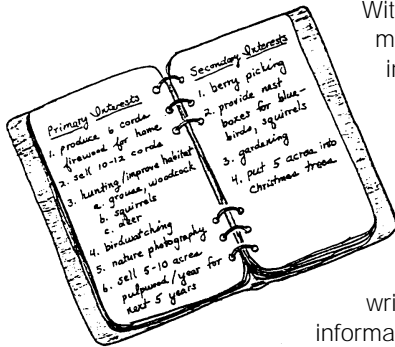 Primary Interests
1. produce 6 cords
firewood for home
2. sell 10-12 cords
3. hunting/improve habitat
a. grouse, woodcock
b. squirrels
c. deer
4. birdwatching
5. nature photography
6. sell 5-10 acres
pulpwood/year for
next 5 years
Secondary Interests
1. berry picking
2. provide nest
boxes for blue-
birds, squirrels
3. gardening
4. put 5 acres into
Christmas trees
Wit
m
in
wri
informa